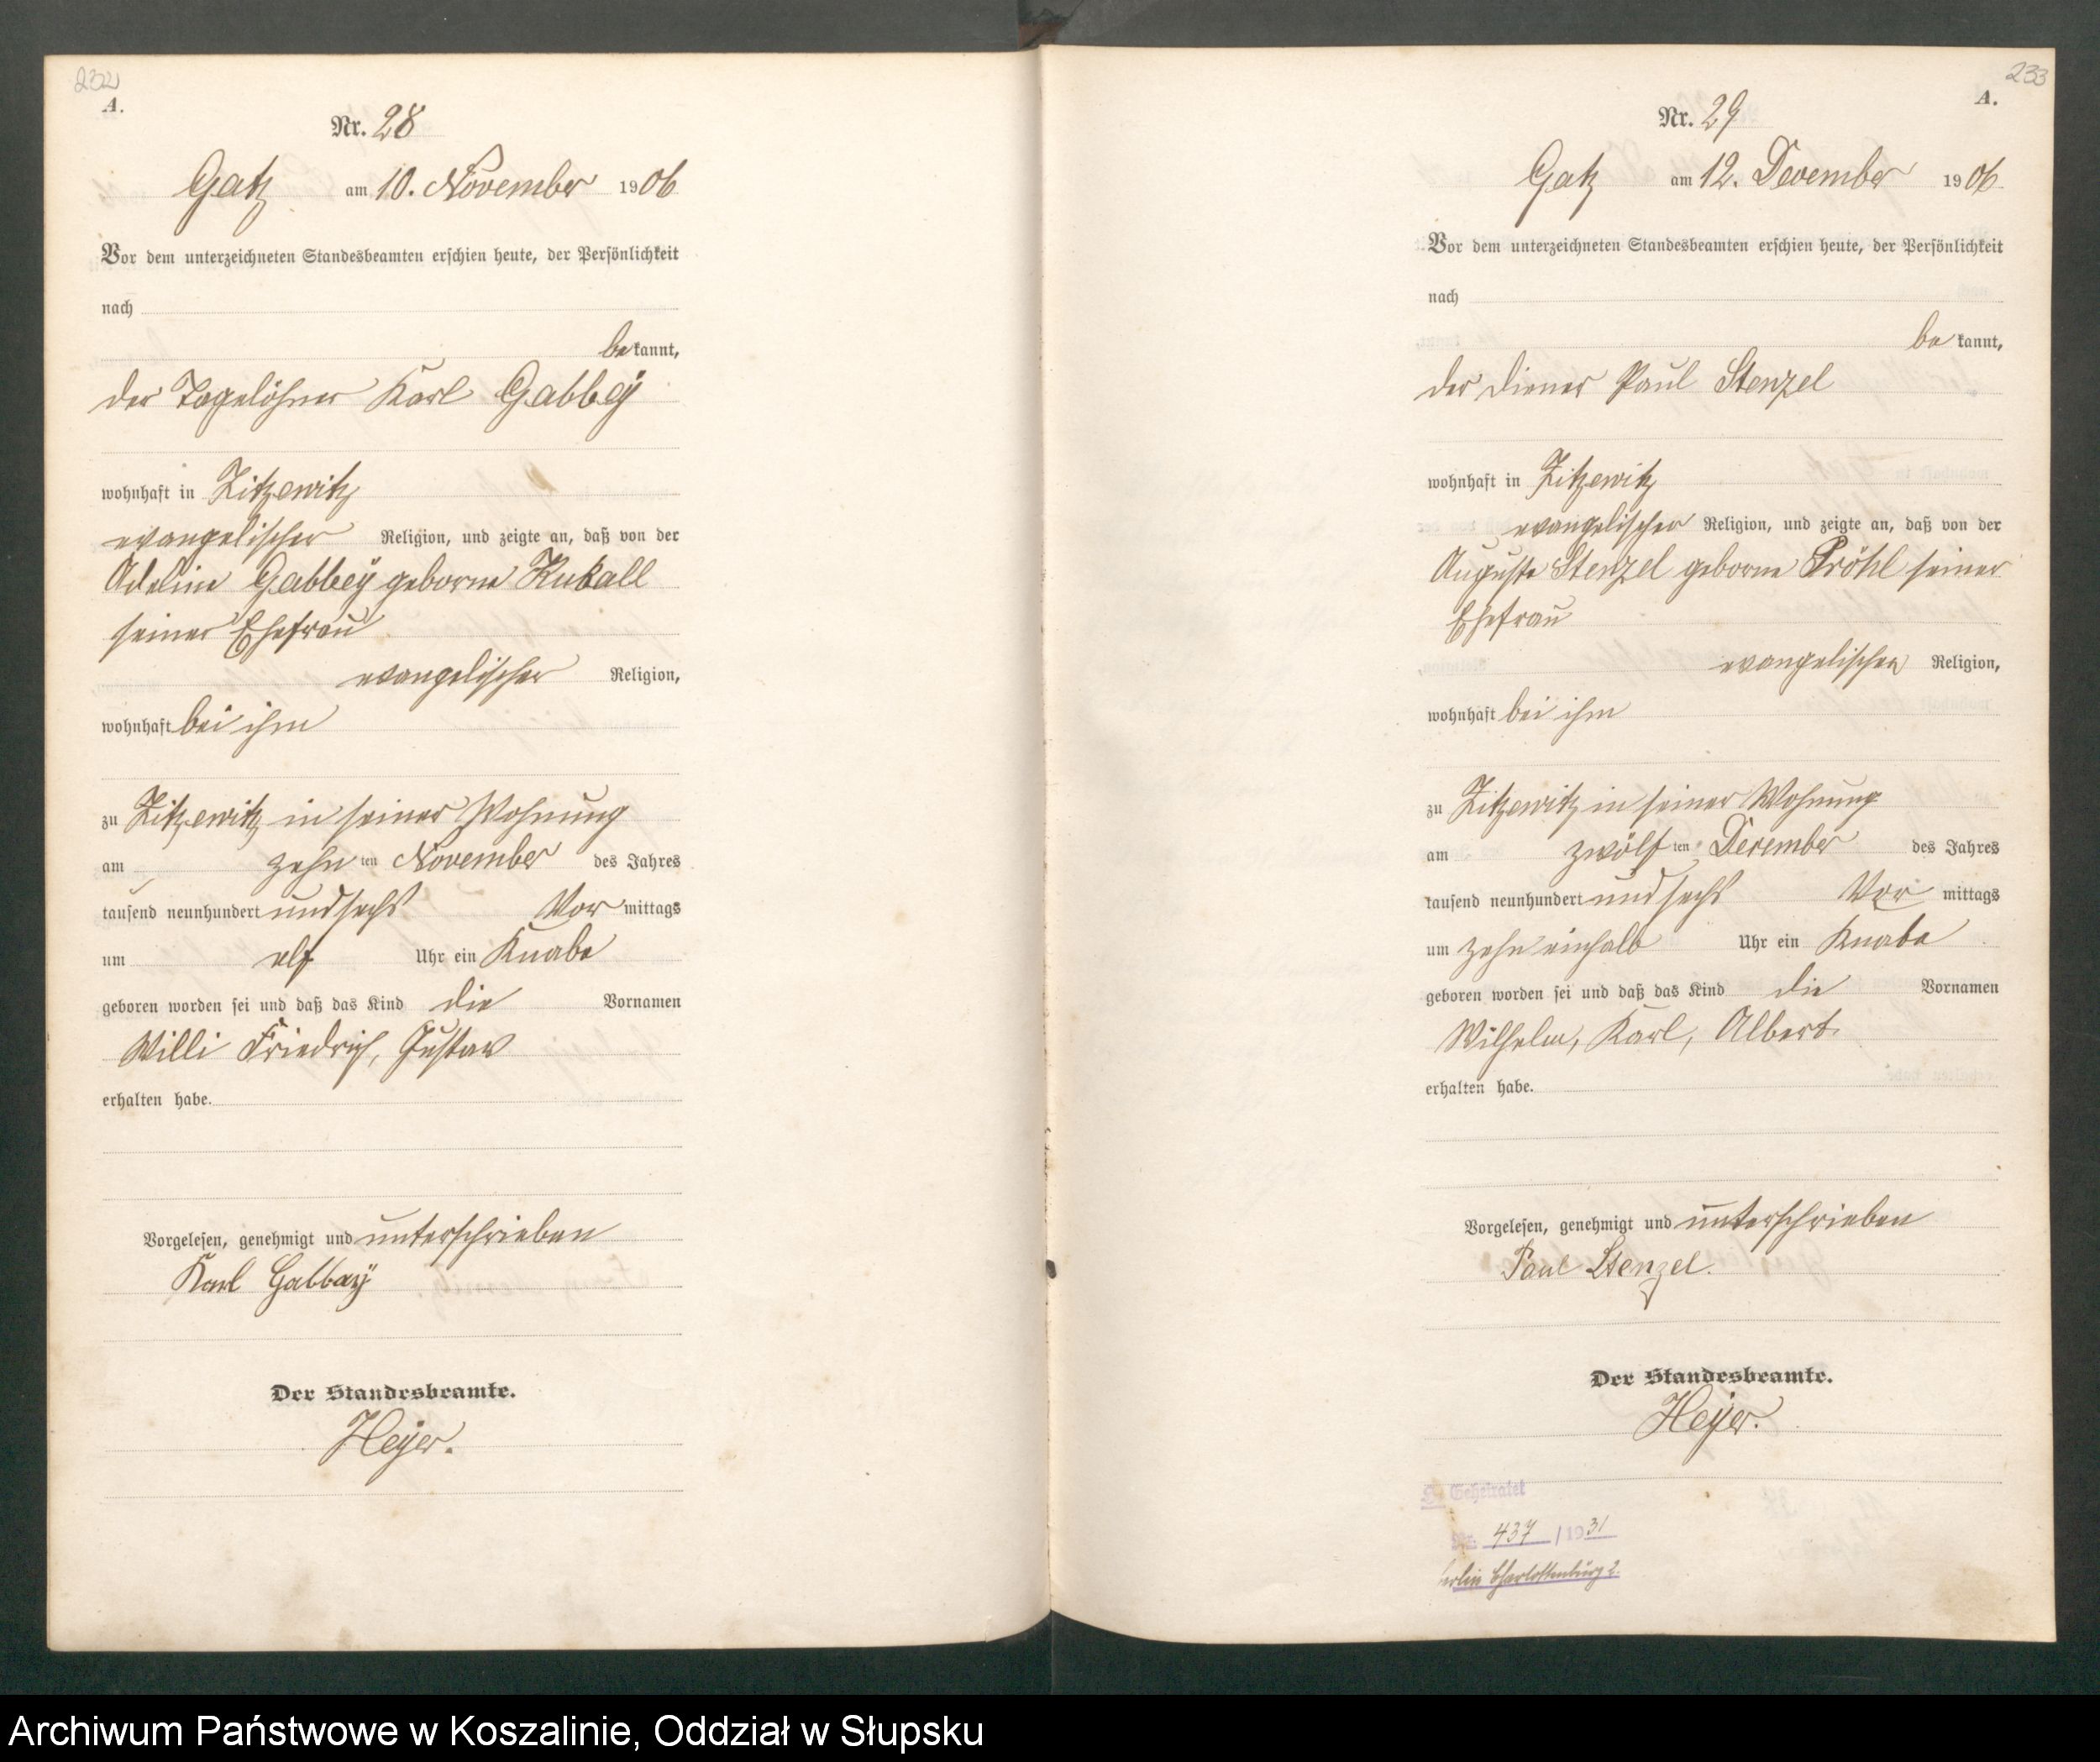 232
A.
Nr. 28
Gatz am 10. November 1906
Vor dem unterzeichneten Standesbeamten erschien heute, der Persönlichkeit
nach
bekannt,
der Tagelöhner Karl Gabbey
wohnhaft in Zitzewitz
evangelischer Religion, und zeigte an, daß von der
Adeline Gabbey geborne Kuball
seiner Ehefrau
evangelischer Religion,
wohnhaft bei ihm
zu Zitzewitz in seiner Wohnung
am zehnten November des Jahres
tausend neunhundert und sechs Vormittags
um elf Uhr ein Knabe
geboren worden sei und daß das Kind die Vornamen
Willi Friedrich, Gustav
erhalten habe.
Vorgelesen, genehmigt und unterschrieben
Karl Gabbaÿ
Der Standesbeamte.
Heyer.
233
A.
Nr. 29
Gatz am 12. Dezember 1906.
Vor dem unterzeichneten Standesbeamten erschien heute, der Persönlichkeit
nach
bekannt,
der Diener Paul Stenzel
wohnhaft in Zitzewitz
evangelischer Religion, und zeigte an, daß von der
Auguste Stenzel geborne Pröhl seiner
Ehefrau
evangelischer Religion,
wohnhaft bei ihm
zu Zitzewitz in seiner Wohnung
am zwölften Dezember des Jahres
tausend neunhundert und sechs Vormittags
um zehn einhalb Uhr ein Knabe
geboren worden sei und daß das Kind die Vornamen
Wilhelm, Karl, Albert
erhalten habe.
Vorgelesen, genehmigt und unterschrieben
Paul Stenzel.
Der Standesbeamte.
Heyer.
Geheiratet
Nr. 437 / 1931
Berlin Charlottenburg 2.
Archiwum Państwowe w Koszalinie, Oddział w Słupsku